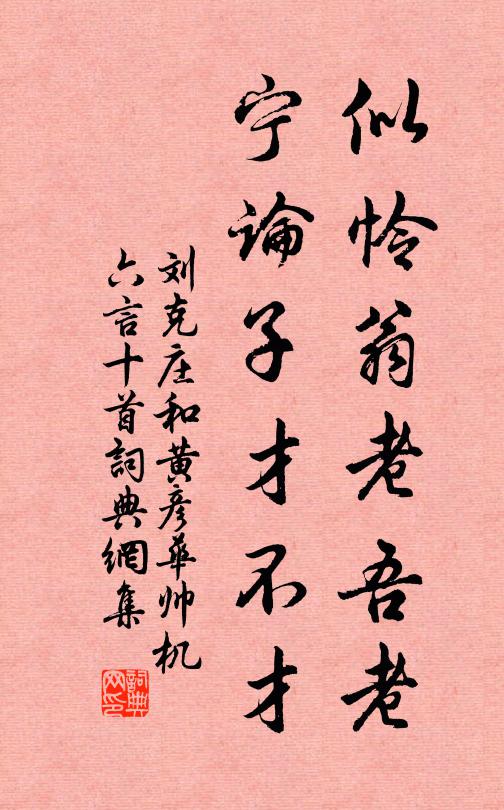 似怜翁老吾老
宁論子才不才
刘克庄和黄彦華帅机
六言十首詞典網集
詞典
网印